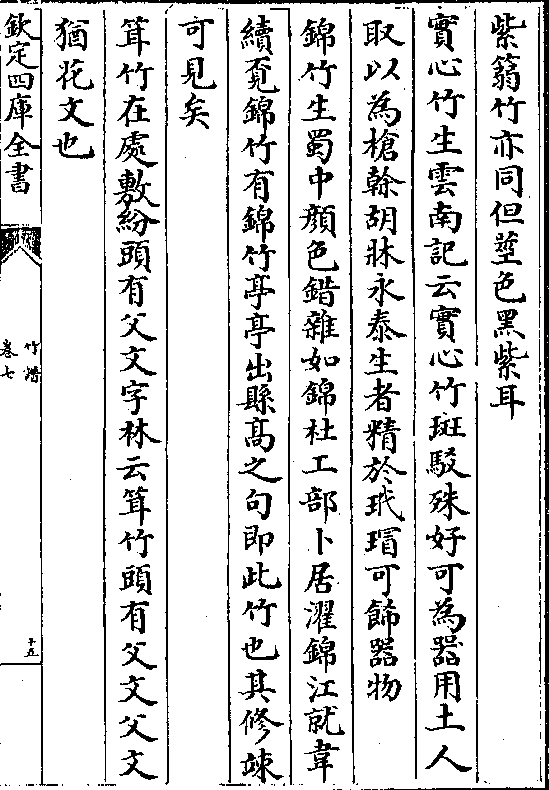 紫篛竹亦同但莖色黑紫耳
實心竹生雲南記云實心竹斑駁殊好可為器用土人
取以為槍榦胡牀永泰生者精於玳瑁可飾器物
錦竹生蜀中顔色錯雜如錦杜工部卜居濯錦江就韋
續覔錦竹有錦竹亭亭出縣高之句即此竹也其修竦
可見矣
筓竹在處敷紛頭有父文字林云筓竹頭有父文父文
猶花文也
欽定四庫全書
竹譜
卷七
十五